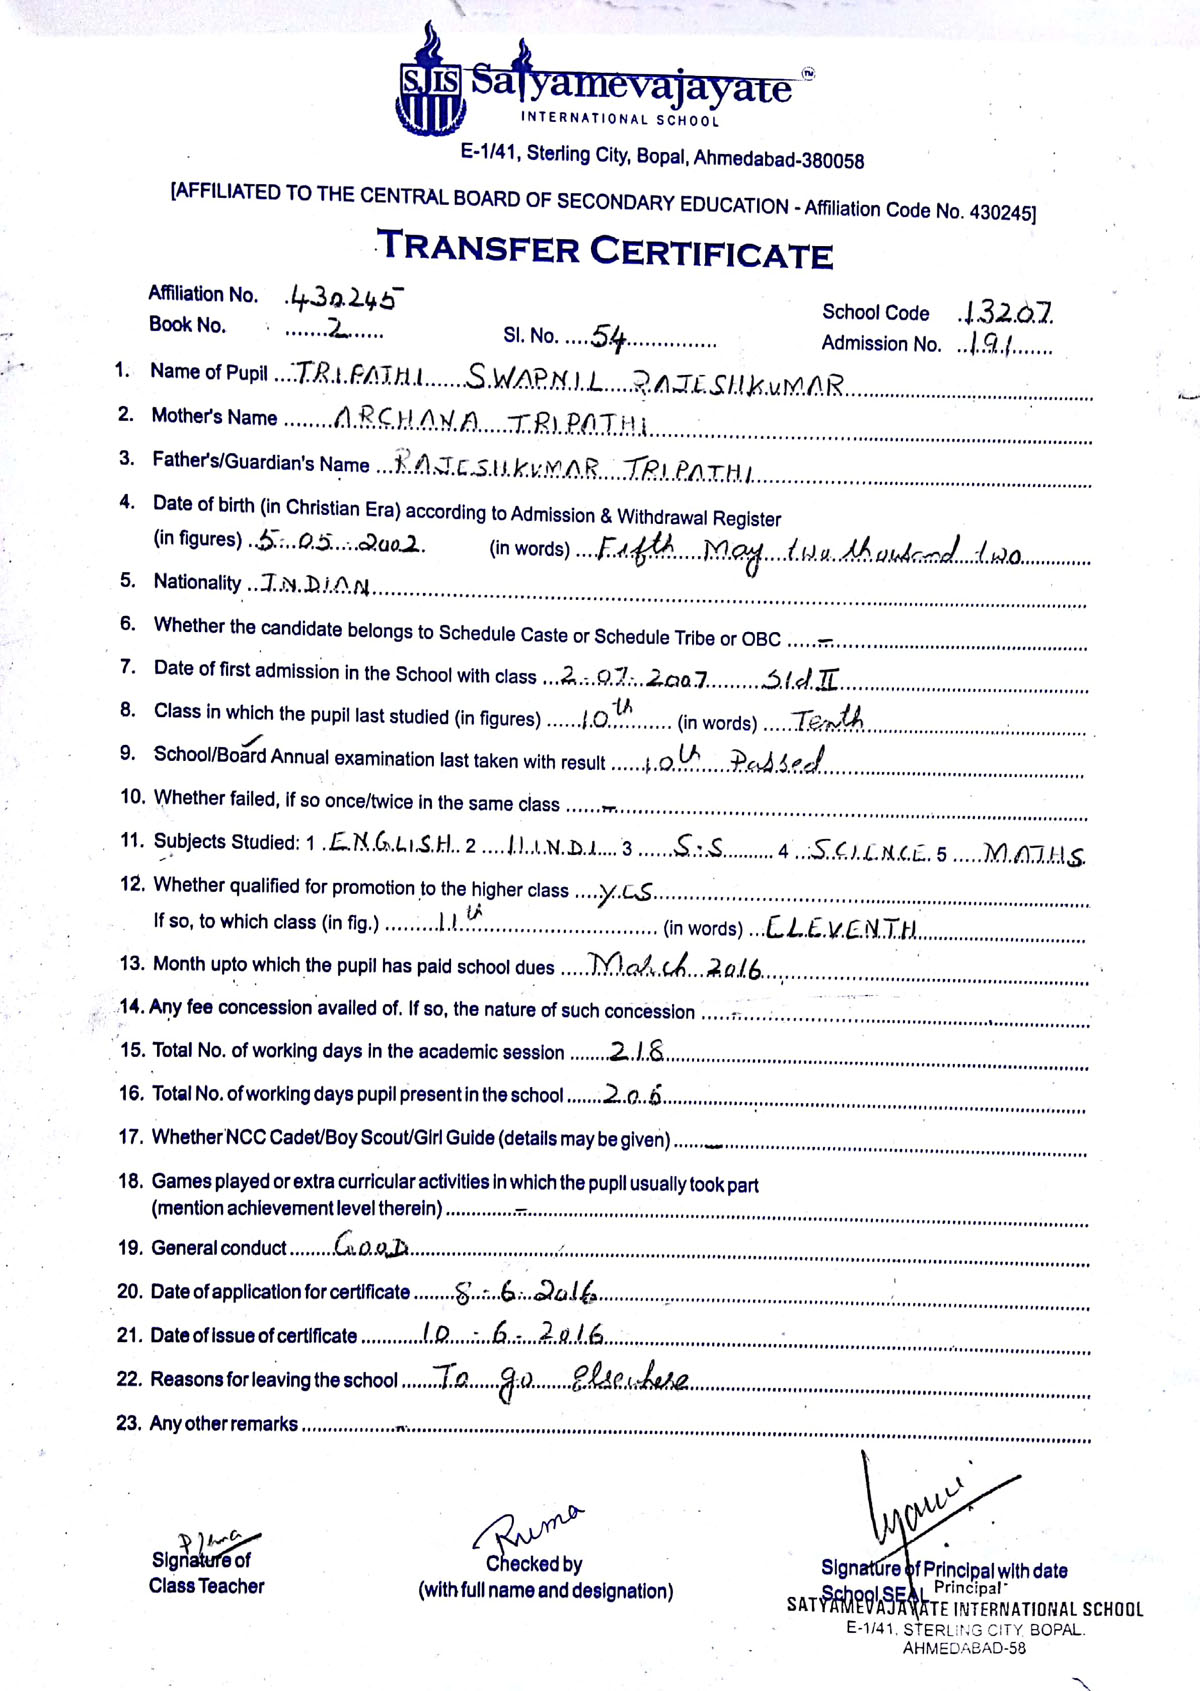 SJIS Satyamevajayate TM
INTERNATIONAL SCHOOL
E-1/41, Sterling City, Bopal, Ahmedabad-380058
[AFFILIATED TO THE CENTRAL BOARD OF SECONDARY EDUCATION - Affiliation Code No. 430245]
TRANSFER CERTIFICATE
Affiliation No. 430245
School Code 13207
Book No. 2
Sl. No. 54
Admission No. 191
1. Name of Pupil TRIPATHI SWAPNIL RAJESHKUMAR
2. Mother's Name ARCHANA TRIPATHI
3. Father's/Guardian's Name RAJESHKUMAR TRIPATHI
4. Date of birth (in Christian Era) according to Admission & Withdrawal Register
(in figures) 5-05-2002. (in words) Fifth May two thousand two
5. Nationality INDIAN
6. Whether the candidate belongs to Schedule Caste or Schedule Tribe or OBC -
7. Date of first admission in the School with class 2-07-2007 Std II
8. Class in which the pupil last studied (in figures) 10th (in words) Tenth
9. School/Board Annual examination last taken with result 10th Passed
10. Whether failed, if so once/twice in the same class -
11. Subjects Studied: 1 ENGLISH 2 HINDI 3 S.S 4 SCIENCE 5 MATHS
12. Whether qualified for promotion to the higher class YES
If so, to which class (in fig.) 11th (in words) ELEVENTH
13. Month upto which the pupil has paid school dues March 2016
14. Any fee concession availed of. If so, the nature of such concession -
15. Total No. of working days in the academic session 218
16. Total No. of working days pupil present in the school 206
17. Whether NCC Cadet/Boy Scout/Girl Guide (details may be given) -
18. Games played or extra curricular activities in which the pupil usually took part
(mention achievement level therein) -
19. General conduct GOOD
20. Date of application for certificate 8-6-2016
21. Date of issue of certificate 10-6-2016
22. Reasons for leaving the school To go Elsewhere
23. Any other remarks -
Ruma
Signature of
Class Teacher
Checked by
(with full name and designation)
Signature of Principal with date
School SEAL Principal
SATYAMEVAJAYATE INTERNATIONAL SCHOOL
E-1/41, STERLING CITY, BOPAL.
AHMEDABAD-58